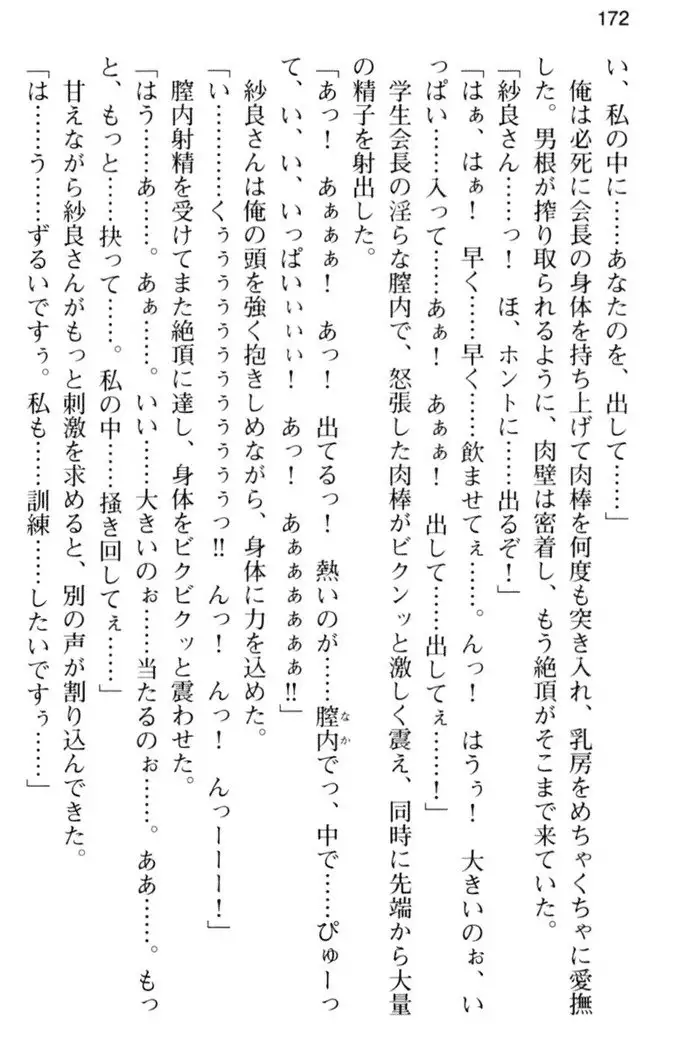 172
い、私の中に……あなたのを、出して……」
俺は必死に会長の身体を持ち上げて肉棒を何度も突き入れ、乳房をめちゃくちゃに愛撫
した。男根が搾り取られるように、肉壁は密着し、もう絶頂がそこまで来ていた。
「紗良さん……っ！　ほ、ホントに……出るぞ！」
「はぁ、はぁ！　早く……早く……飲ませてぇ……。んっ！　はうぅ！　大きいのぉ、い
っぱい……入って……あぁ！　あぁぁ！　出して……出してぇ……！」
学生会長の淫らな膣内で、怒張した肉棒がビクンッと激しく震え、同時に先端から大量
の精子を射出した。
「あっ！　あぁぁぁ！　あっ！　出てるっ！　熱いのが……膣内でっ、中で……ぴゅーっ
なか
て、い、い、いっぱいぃぃぃ！　あっ！　あぁぁぁぁぁぁ‼」
紗良さんは俺の頭を強く抱きしめながら、身体に力を込めた。
「い…………くぅぅぅぅぅぅぅぅぅぅぅっ‼　んっ！　んっ！　んっーーーー！」
膣内射精を受けてまた絶頂に達し、身体をビクビクッと震わせた。
「はう……あ……。あぁ……。いい……大きいのぉ……当たるのぉ……。ああ……。もっ
と、もっと……抉って……。私の中……掻き回してぇ……」
甘えながら紗良さんがもっと刺激を求めると、別の声が割り込んできた。
「は……う……ずるいですぅ。私も……訓練……したいですぅ……」